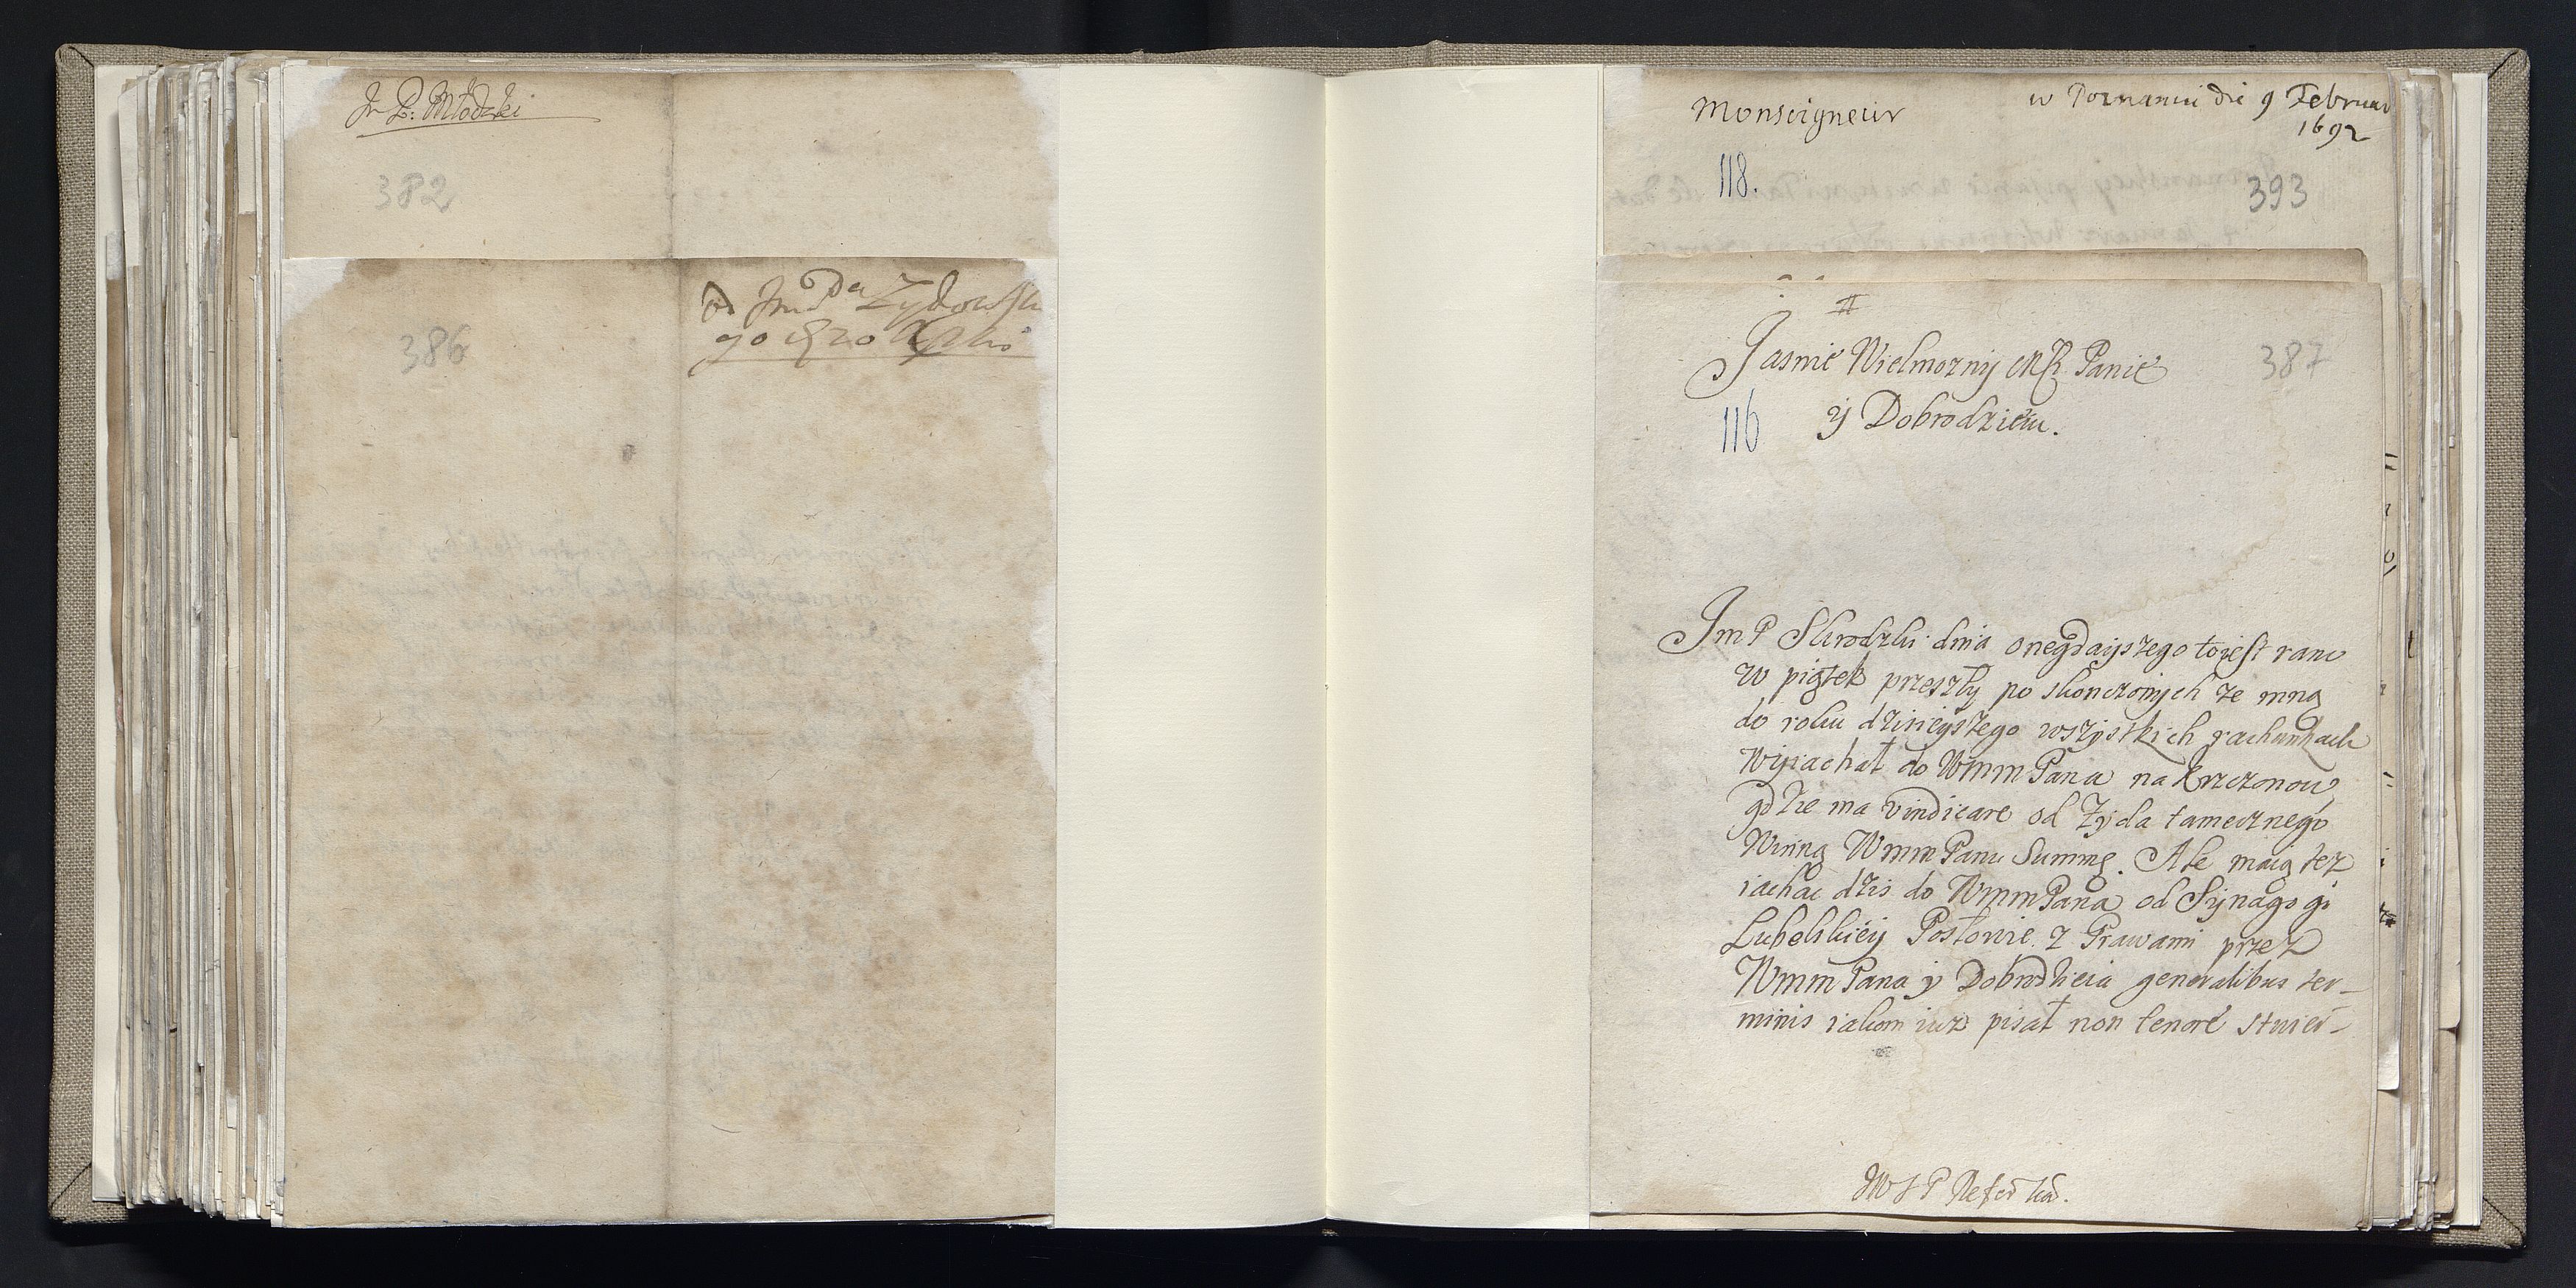 Jm P: Młodzki
382
od Jm Pa Żydowski
go
386
Monseigneur
w Poznaniu die 9 Februar
1692
118.
393
Jasnie Wielmozny MP. Panie
387
116
y Dobrodzieiu.
Jm P Skrodzki dnia onegdayszego toiest rano
w piątek przeszły po skonczonych ze mną
do roku dzisieyszego wszystkich rachunkach
Wyiachał do WmmPana na Krzczonow,
gdzie ma vindicare od Zyda tamecznego
Winną WmmPanu Summę. Ale maią tez
iachac dzis do WmmPana od Synagogi
Lubelskiey Posłowie z Prawami przez
WmmPana y Dobrodzieia generalibus ter-
minis iakom iuz pisał non tenore stwier-
JW J P Refer